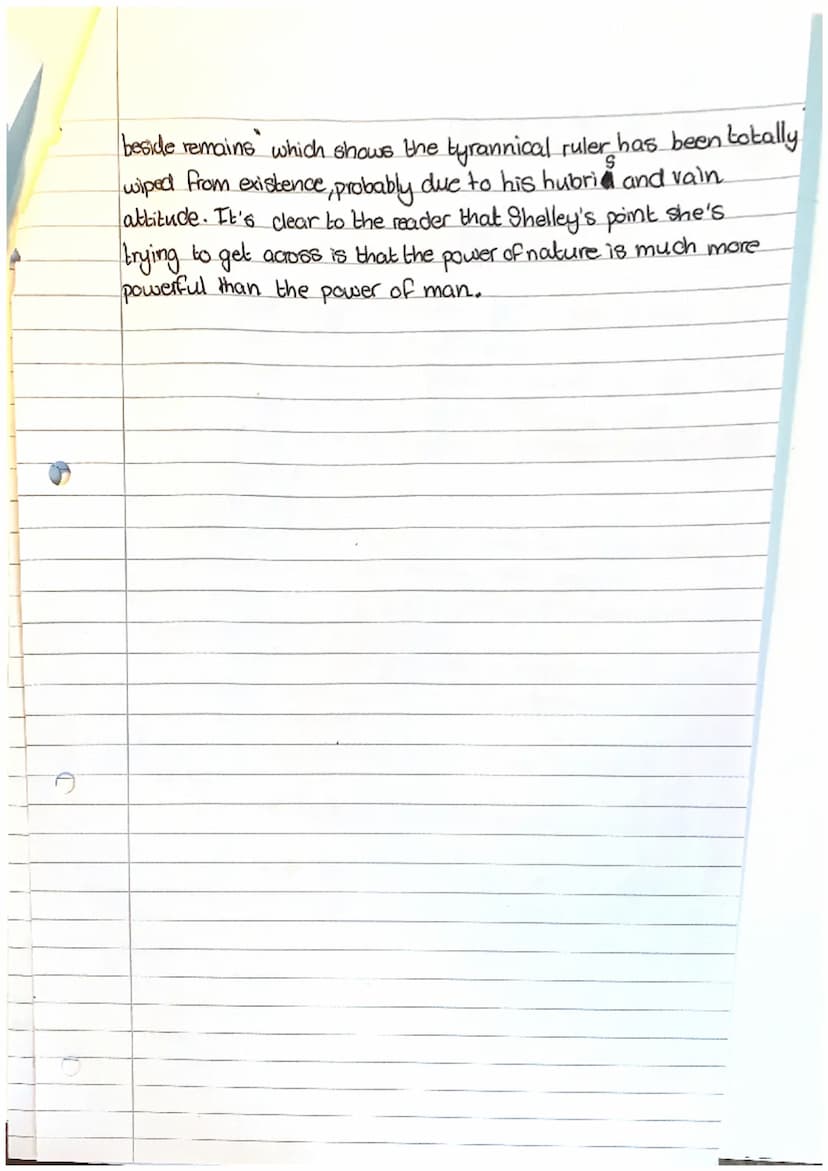 beside remains` which shows the tyrannical ruler has been totally
wiped from existence, probably due to his hubris and vain
attitude. It's clear to the reader that Shelley's point she's
trying to get across is that the power of nature is much more
powerful than the power of man.